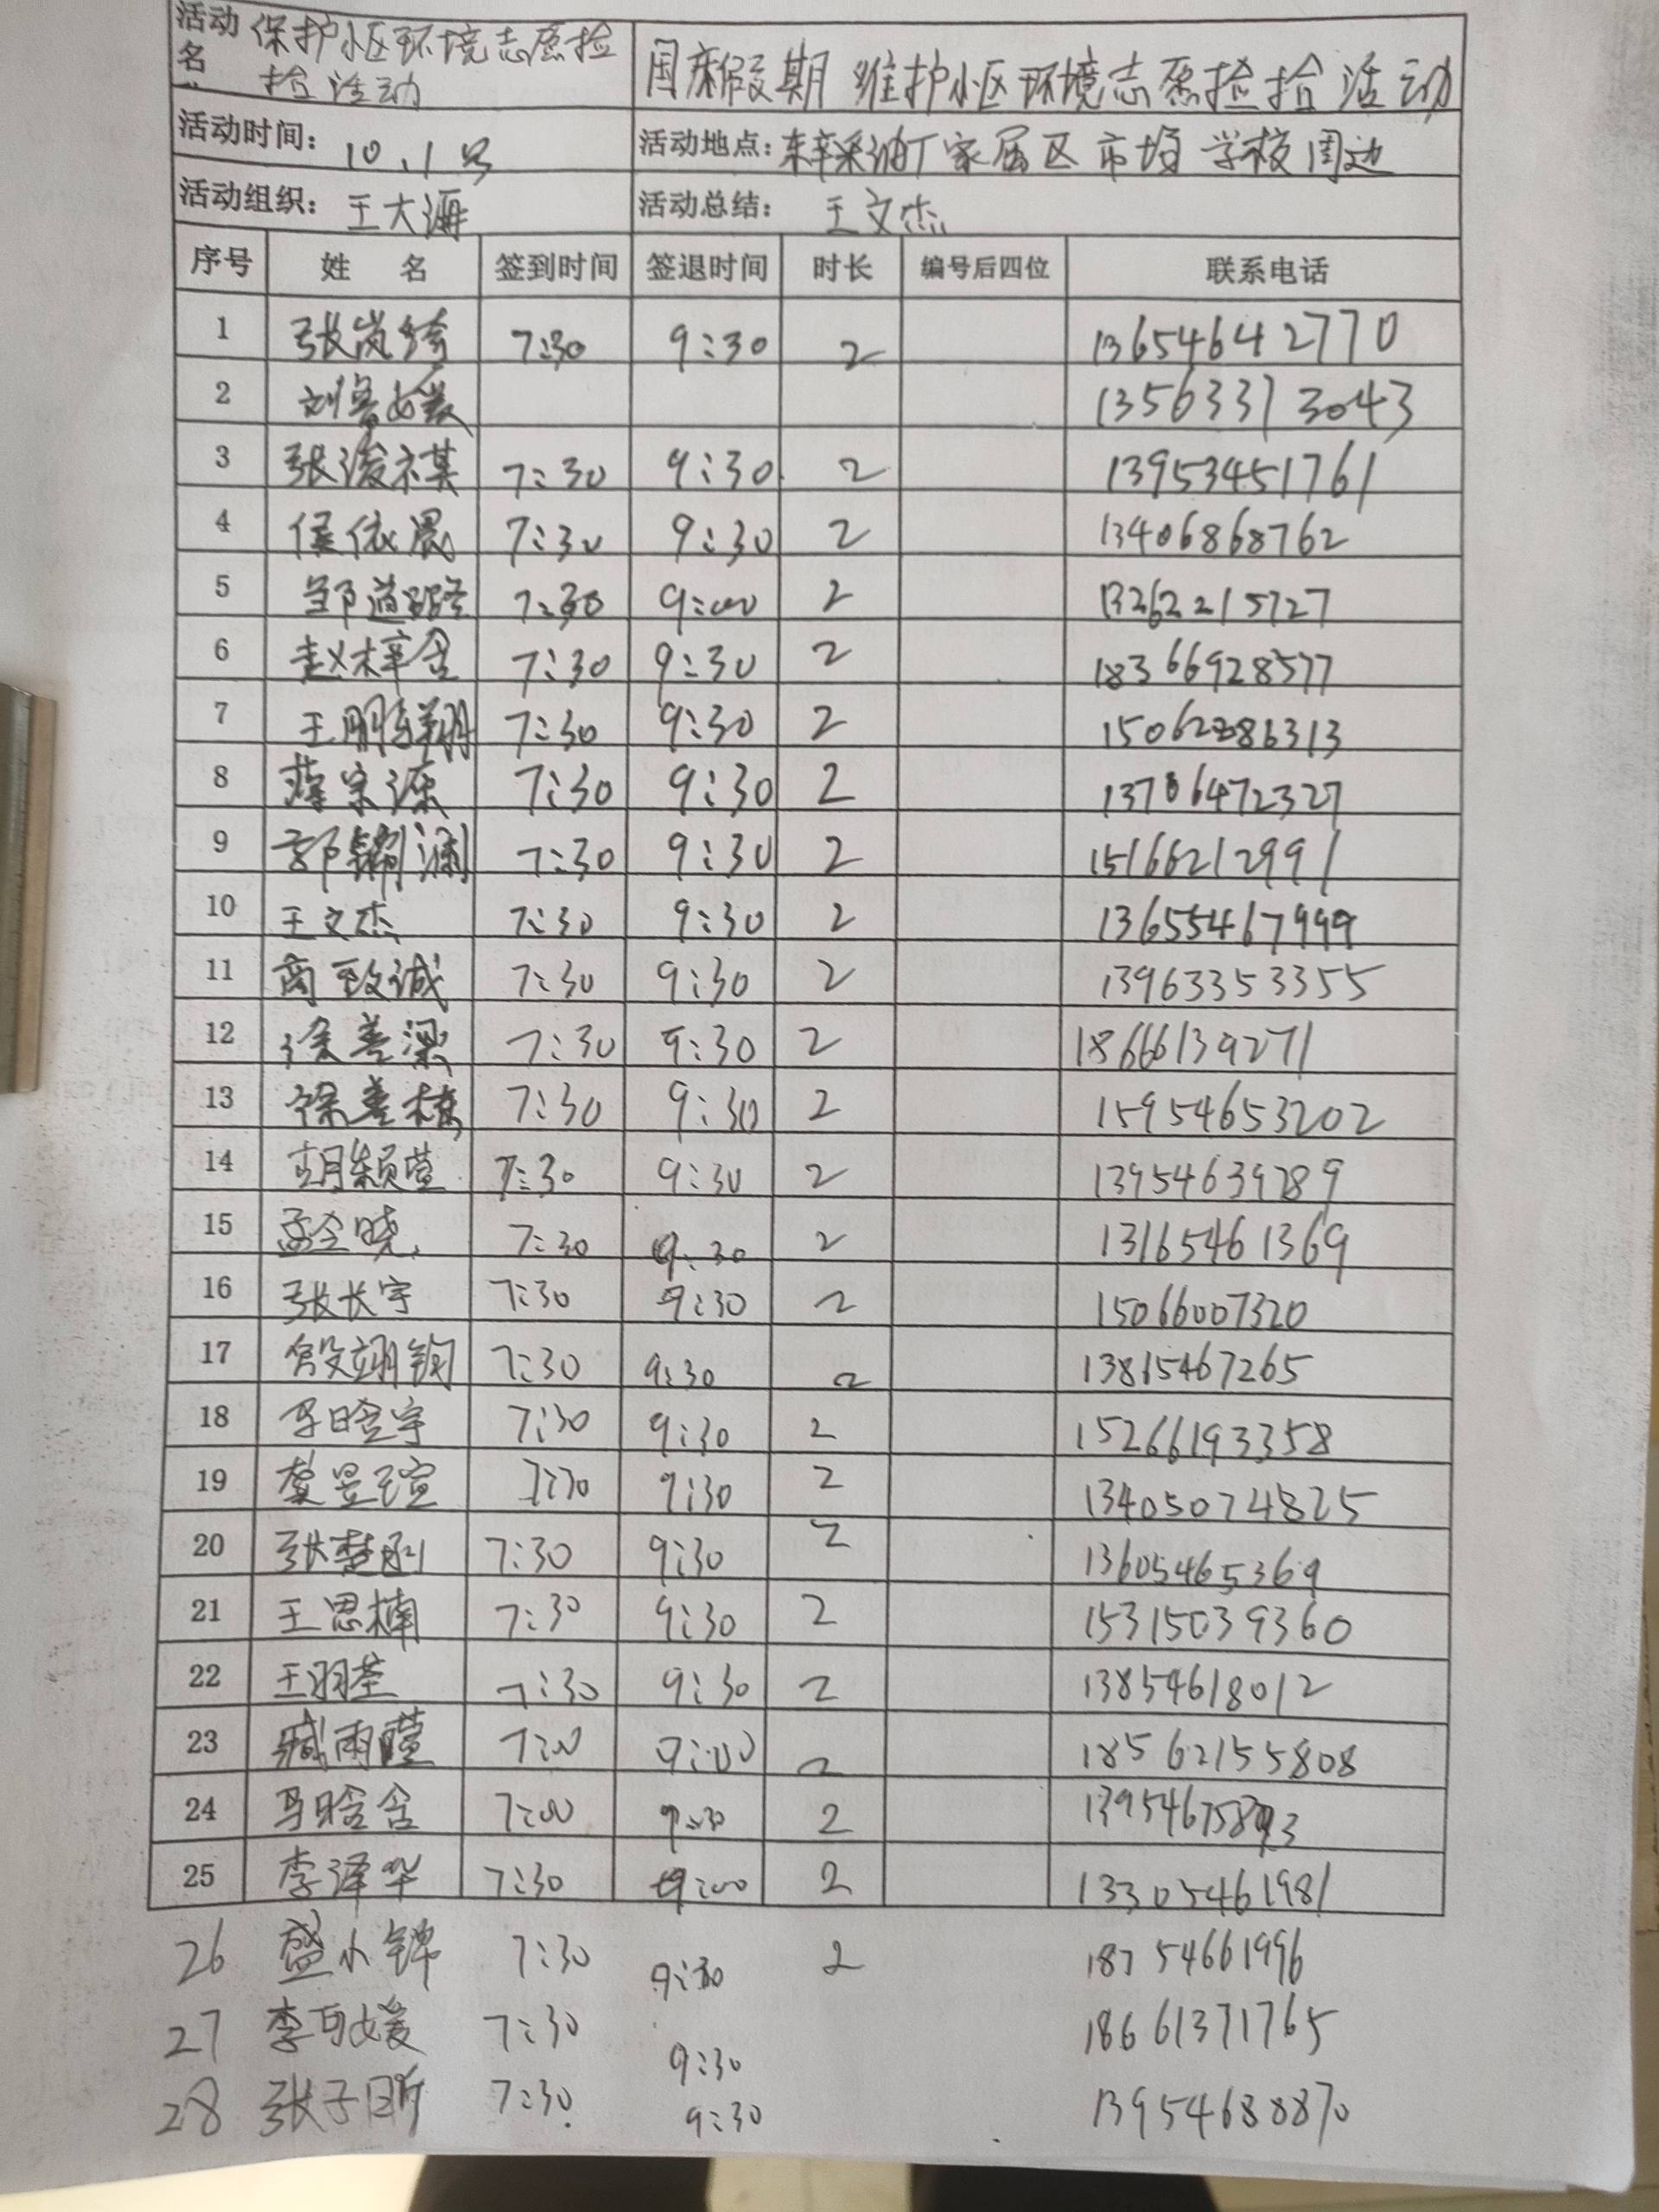 活动名 保护小区环境志愿捡拾活动 国庆假期 维护小区环境志愿捡拾活动
活动时间: 10.1号 活动地点: 东辛采油厂家属区 市场 学校周边
活动组织: 王大海 活动总结: 王文杰
序号 姓 名 签到时间 签退时间 时长 编号后四位 联系电话
1 张岚绮 7:30 9:30 2 13654642770
2 刘 13563313043
3 张浚祺 7:30 9:30 2 13953451761
4 侯依晨 7:30 9:30 2 13406868762
5 邹道 7:30 9:00 2 13262215727
6 赵梓含 7:30 9:30 2 18366928577
7 王鹏翔 7:30 9:30 2 15062286313
8 薛宗源 7:30 9:30 2 13706472327
9 郭 澜 7:30 9:30 2 15166212991
10 王文杰 7:30 9:30 2 13655467999
11 商致诚 7:30 9:30 2 13963353355
12 徐善梁 7:30 9:30 2 18666139271
13 徐善栋 7:30 9:30 2 15954653202
14 胡颖萱 7:30 9:30 2 13954639289
15 孟令晓 7:30 9:30 2 13165461369
16 张长宇 7:30 9:30 2 15066007320
17 殷翊钧 7:30 9:30 2 13815467265
18 马晗宇 7:30 9:30 2 15266193358
19 龚昱瑄 7:30 9:30 2 13405074825
20 张楚函 7:30 9:30 2 13605465369
21 王思楠 7:30 9:30 2 15315039360
22 王羽荃 7:30 9:30 2 13854618012
23 臧雨瞳 7:00 9:00 2 18562155808
24 马晗含 7:00 9:30 2
25 李泽华 7:30 9:00 2 13305461981
26 盛小锦 7:30 9:30 2 18754661996
27 李可媛 7:30 9:30 18661371765
28 张子昕 7:30 9:30 13954688870